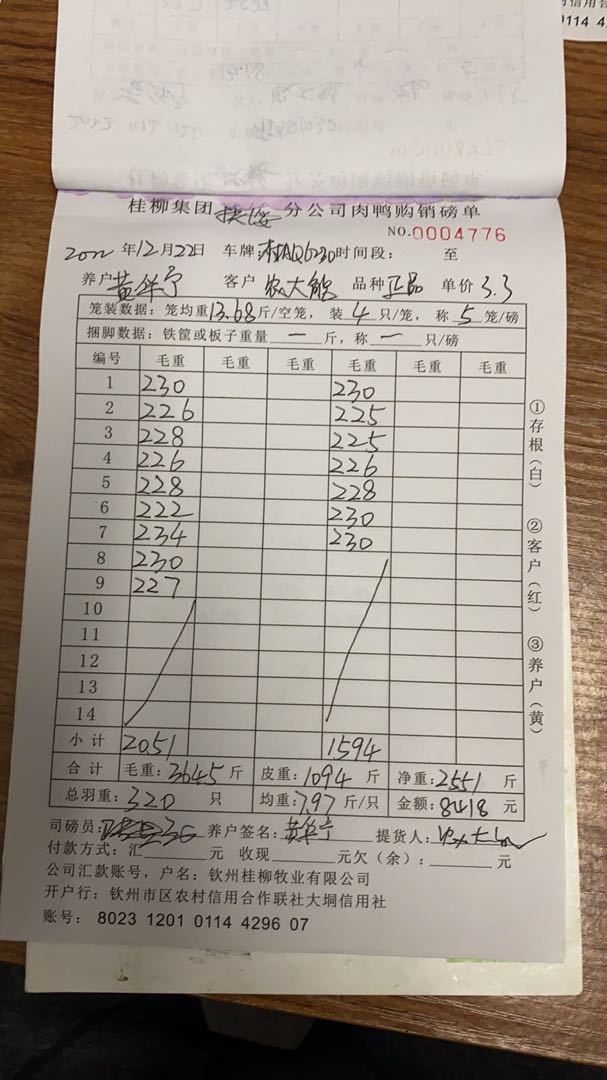 桂柳集团 分公司肉鸭购销磅单
NO.0004776
2022年12月22日 车牌: AQ6230 时间段: 至
养户 黄华宁 客户 农大能 品种 正品 单价 3.3
笼装数据: 笼均重13.68斤/空笼, 装4只/笼, 称5笼/磅
捆脚数据: 铁筐或板子重量 — 斤, 称 — 只/磅
编号 毛重 毛重 毛重 毛重 毛重 毛重
1 230 230
2 226 225
3 228 225
4 226 226
5 228 228
6 222 230
7 234 230
8 230
9 227
10
11
12
13
14
小计 2051 1594
合计 毛重:3645斤 皮重:1094斤 净重:2551斤
总羽重:320只 均重:7.97斤/只 金额:8418元
司磅员: 养户签名:黄华宁 提货人:
付款方式: 汇 元 收现 元欠(余): 元
公司汇款账号, 户名: 钦州桂柳牧业有限公司
开户行: 钦州市区农村信用合作联社大垌信用社
账号: 8023 1201 0114 4296 07
①存根(白) ②客户(红) ③养户(黄)